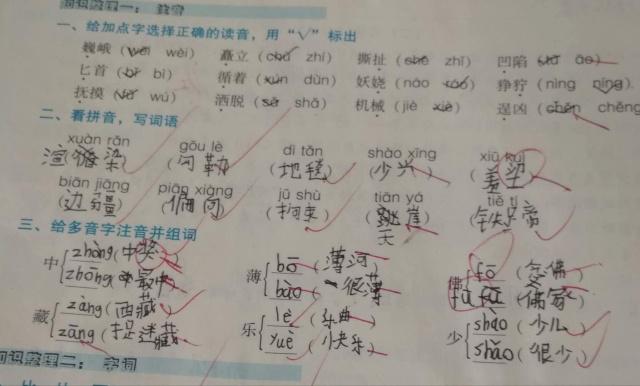 知识整理一：
一、给加点字选择正确的读音，用“√”标出
巍峨（wēi wèi） 矗立（chù zhí） 撕扯（chě zhǐ） 凹陷（āo）
匕首（bǐ bì） 循着（xún dùn） 妖娆（náo ráo） 狰狞（nìng níng）
抚摸（fǔ wú） 洒脱（sǎ shǎ） 机械（jiè xiè） 逞凶（chěn chěng）
二、看拼音，写词语
xuàn rǎn gōu lè dì tǎn shào xīng xiū kuì
渲染（勾勒）（地毯）（少兴）（羞
biān jiāng piān xiàng jū shù tiān yá tiě tí
（边疆）（偏向）（拘束）（跳崖）（铁蹄）
天
三、给多音字注音并组词
中 zhòng（中奖） 薄 bō（薄河） 佛 fó（
zhōng 中最中 báo（很薄） fú（佛家）
藏 zàng（西藏） 乐 lè（乐曲） 少 shào（少儿）
zāng（捉迷藏） yuè（快乐） shǎo（很少）
知识整理二：字词